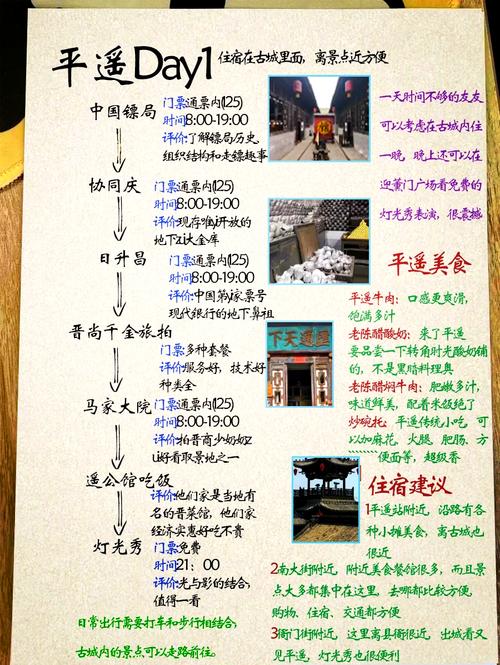 平遥Day1
住宿在古城里面，离景点近方便
中国镖局
门票通票内(125)
时间8:00-19:00
评价:了解镖局历史,
组织结构和走镖趣事
协同庆
门票通票内(125)
时间8:00-19:00
评价现存唯一开放的
地下金库
日升昌
门票通票内(125)
时间8:00-19:00
评价:中国第一家票号
现代银行的地下鼻祖
晋尚千金旅拍
门票:多种套餐
评价:服务好，技术好
种类全
马家大院
门票通票内(125)
时间8:00-19:00
评价拍晋商少奶奶
好看取景地之一
遥公馆吃饭
评价:他们家是当地有
名的晋菜馆，他们家
经济实惠好吃不贵
灯光秀
门票免费
时间21：00
评价:光与影的结合,
值得一看
日常出行需要打车和步行相结合,
古城内的景点可以走路前往。
一天时间不够的友友
可以考虑在古城内住
一晚，晚上还可以在
迎薰门广场看免费的
灯光秀表演，很震撼
汇通天下
平遥美食
平遥牛肉：口感更爽滑，
饱满多汁
老陈醋酸奶：来了平遥
要品尝一下转角时光酸奶铺
的，不是黑醋料理奥
老陈醋焖牛肉：肥嫩多汁，
味道鲜美，配着米饭绝了
炒碗托：平遥传统小吃 可
以加麻花，火腿，肥肠、方
便面等，超级香
住宿建议
1平遥站附近，沿路有各
种小摊美食，离古城也
很近
2南大街附近，附近美食餐馆很多，而且景
点大多都集中在这里，去哪都比较方便，
购物、住宿、交通都方便
3衙门街附近，这里离县衙很近，出城看又
见平遥，灯光秀也很便利